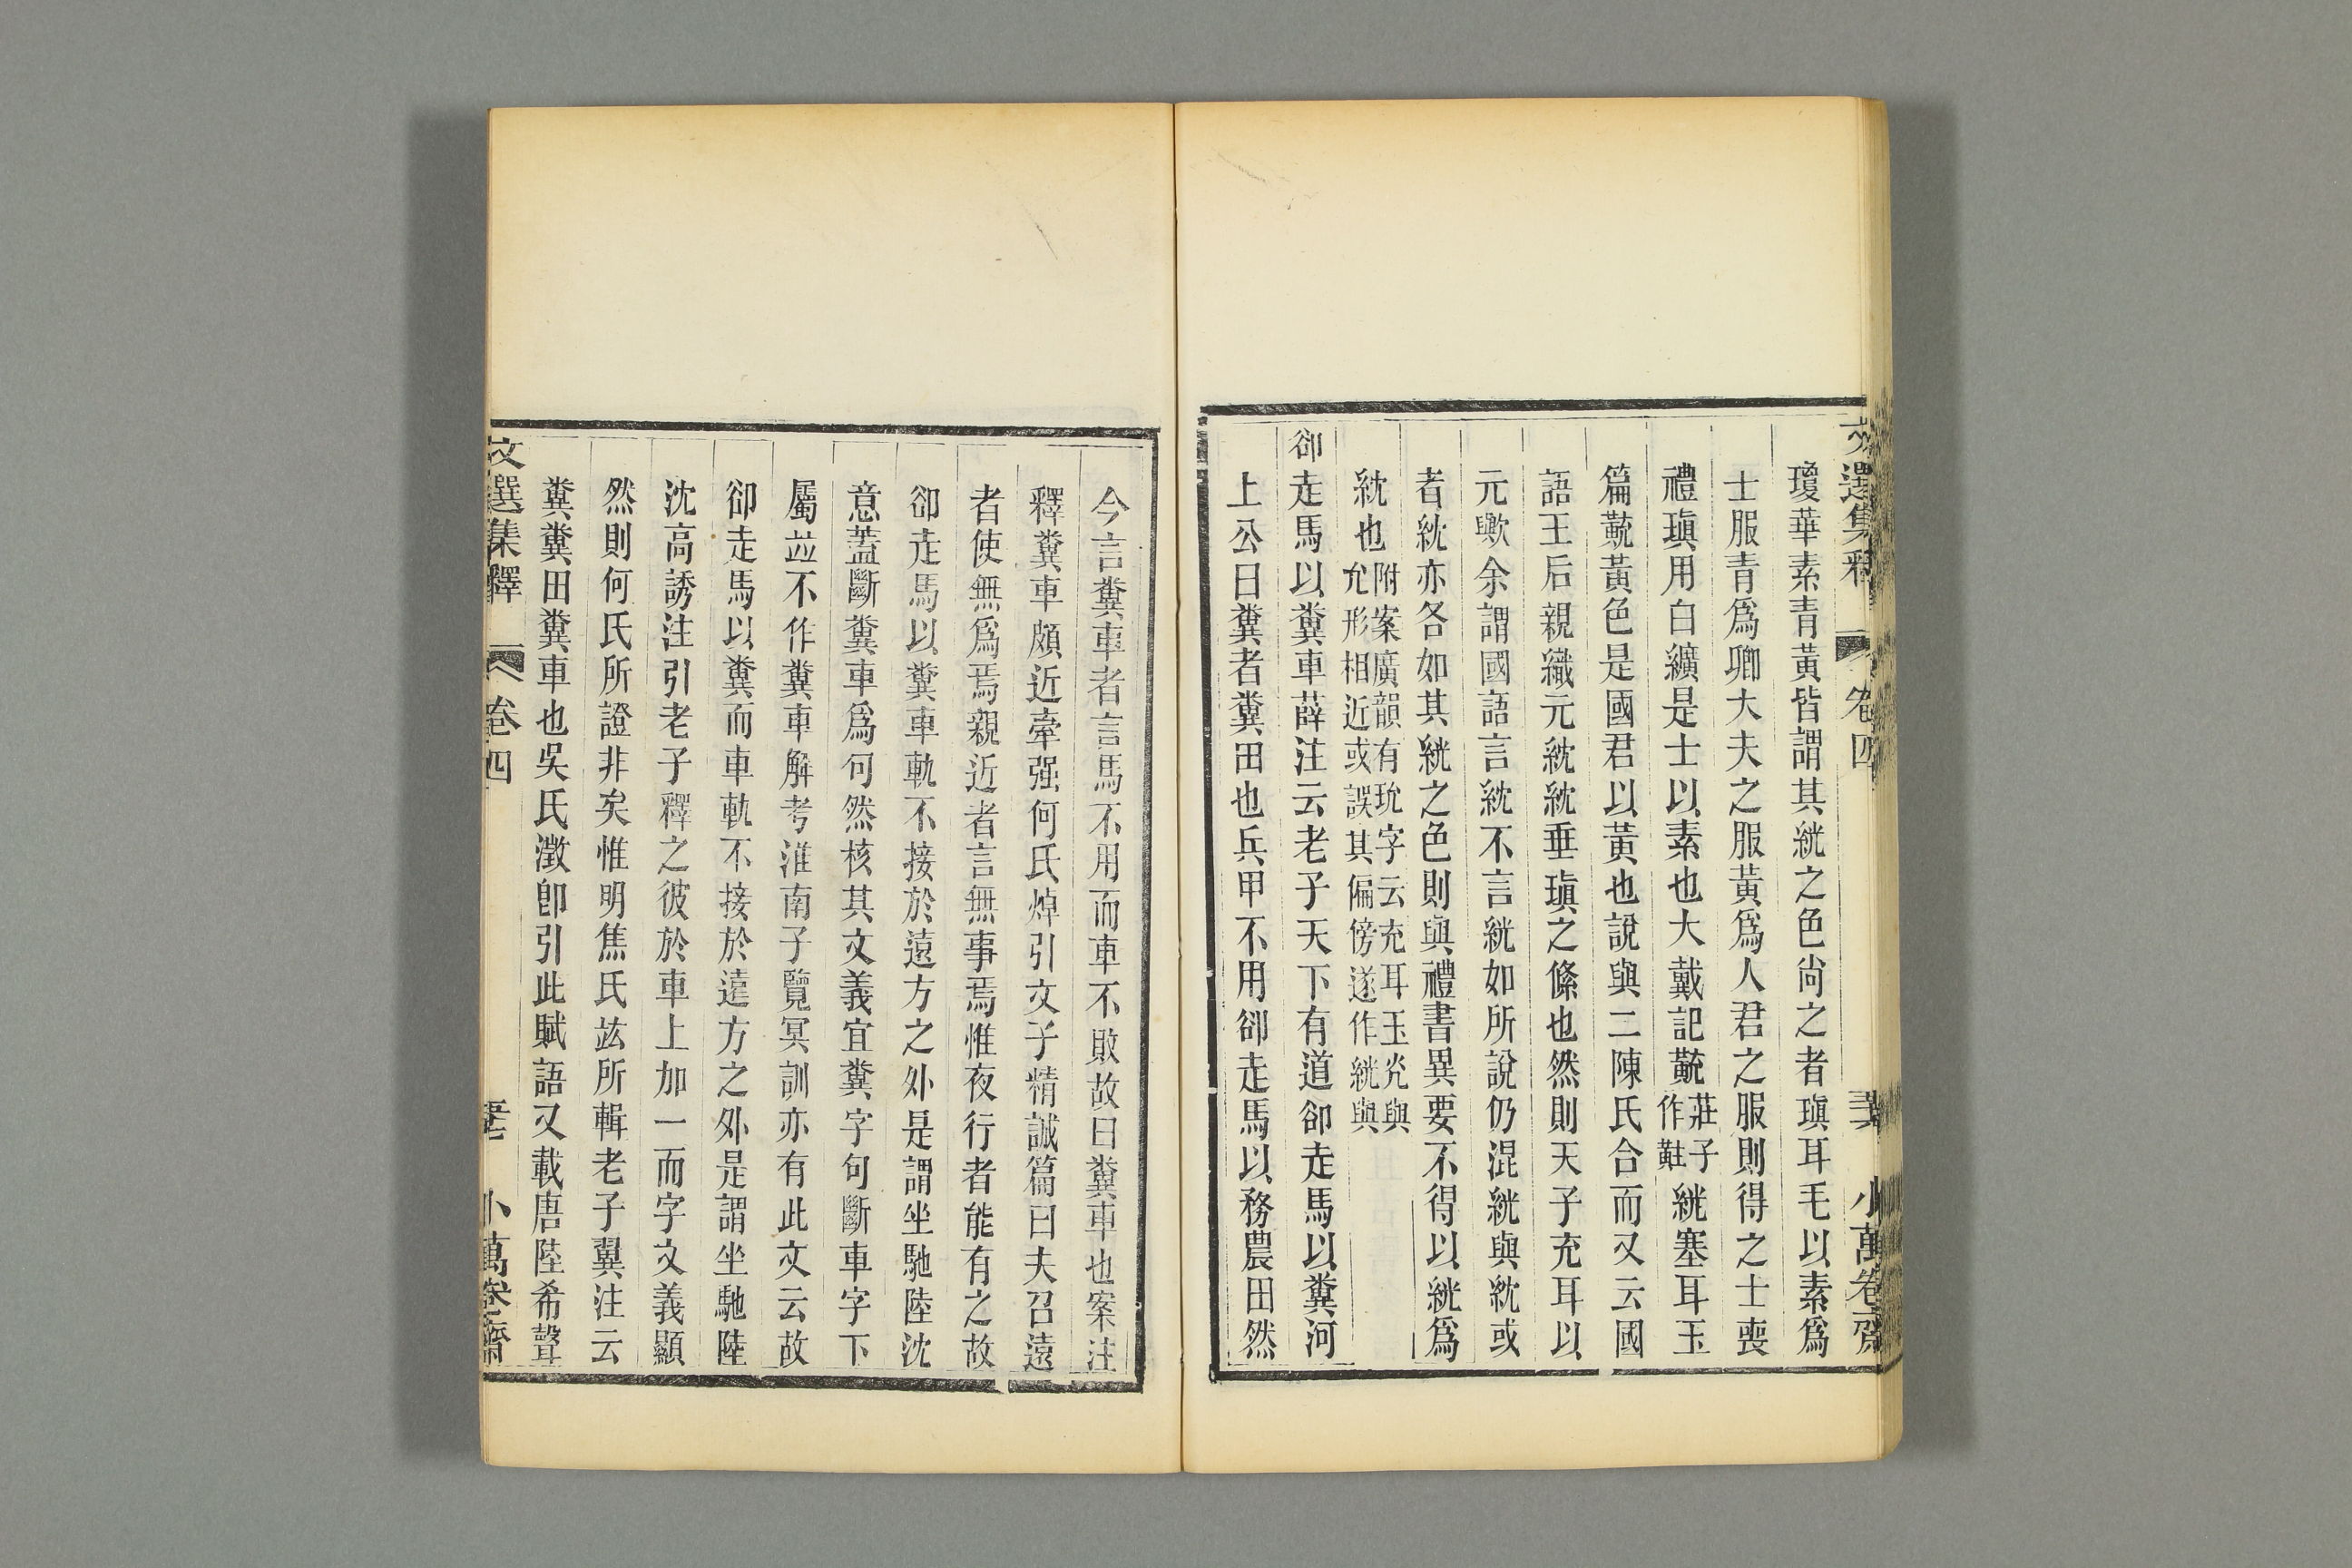 文選集釋 卷四 小萬卷齋
瓊華素青黃皆謂其絖之色尚之者瑱耳毛以素爲
士服青爲卿大夫之服黃爲人君之服則得之士喪
禮瑱用白纊是士以素也大戴記黈莊子作黈絖塞耳玉
篇黈黃色是國君以黃也說與二陳氏合而又云國
語王后親織元紞紞垂瑱之絛也然則天子充耳以
元歟余謂國語言紞不言絖如所說仍混絖與紞或
者紞亦各如其絖之色則與禮書異要不得以絖爲
紞也附案廣韻有珫字云充耳玉㳘與允形相近或誤其偏傍遂作絖與
卻走馬以糞車薛注云老子天下有道卻走馬以糞河
上公曰糞者糞田也兵甲不用卻走馬以務農田然
今言糞車者言馬不用而車不敗故曰糞車也案注
釋糞車頗近牽强何氏焯引文子精誠篇曰夫召遠
者使無爲焉親近者言無事焉惟夜行者能有之故
卻走馬以糞車軌不接於遠方之外是謂坐馳陸沈
意蓋斷糞車爲句然核其文義宜糞字句斷車字下
屬並不作糞車解考淮南子覽冥訓亦有此文云故
卻走馬以糞而車軌不接於遠方之外是謂坐馳陸
沈高誘注引老子釋之彼於車上加一而字文義顯
然則何氏所證非矣惟明焦氏竑所輯老子翼注云
糞糞田糞車也吳氏澂卽引此賦語又載唐陸希聲
文選集釋 卷四 小萬卷齋